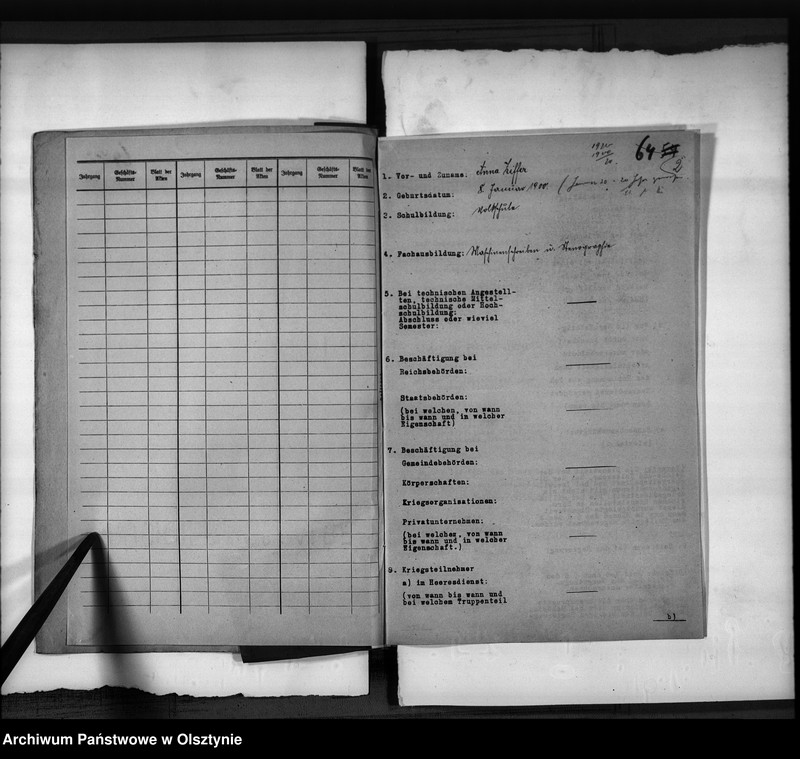 Jahrgang Geschäfts-Nummer Blatt der Akten Jahrgang Geschäfts-Nummer Blatt der Akten Jahrgang Geschäfts-Nummer Blatt der Akten
64
2
1. Vor- und Zuname: Anna
2. Geburtsdatum: 8. Januar 1900
3. Schulbildung: Volksschule
4. Fachausbildung: Maschinenschreiben u. Stenographie
5. Bei technischen Angestell-
ten, technische Mittel-
schulbildung oder Hoch-
schulbildung:
Abschluss oder wieviel
Semester:
6. Beschäftigung bei
Reichsbehörden:
Staatsbehörden:
(bei welchen, von wann
bis wann und in welcher
Eigenschaft)
7. Beschäftigung bei
Gemeindebehörden:
Körperschaften:
Kriegsorganisationen:
Privatunternehmen:
(bei welchen, von wann
bis wann und in welcher
Eigenschaft.)
8. Kriegsteilnehmer
a) im Heeresdienst:
(von wann bis wann und
bei welchem Truppenteil
b)
Archiwum Państwowe w Olsztynie